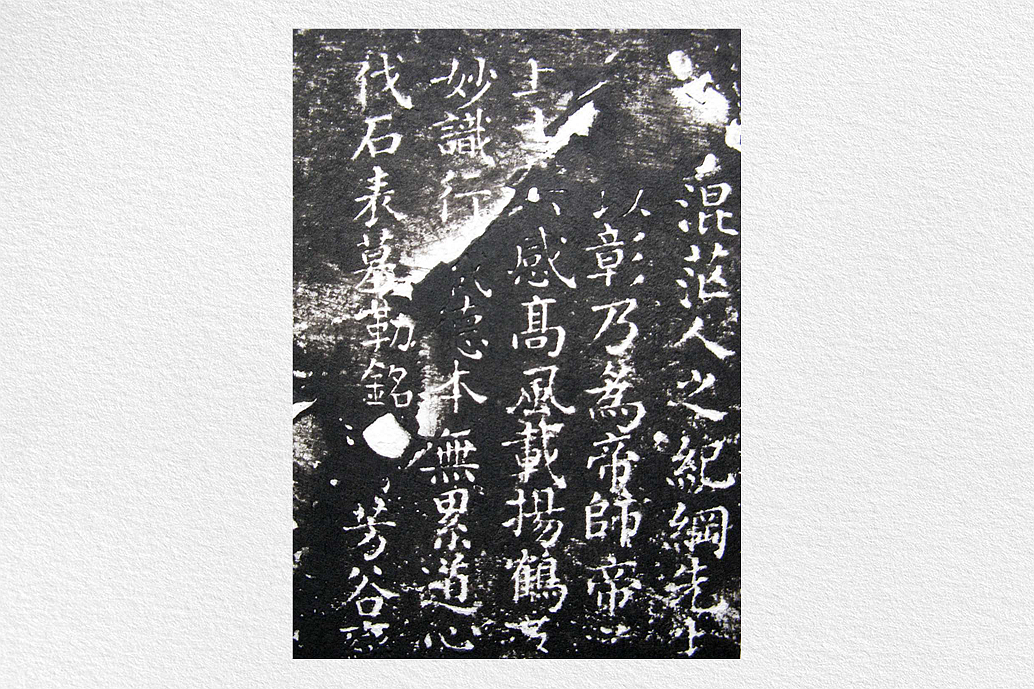 混茫人之紀綱先生
以彰乃為帝師帝
上士 感高風載揚鶴
妙識行 德本無累道心
伐石表墓勒銘 芳谷